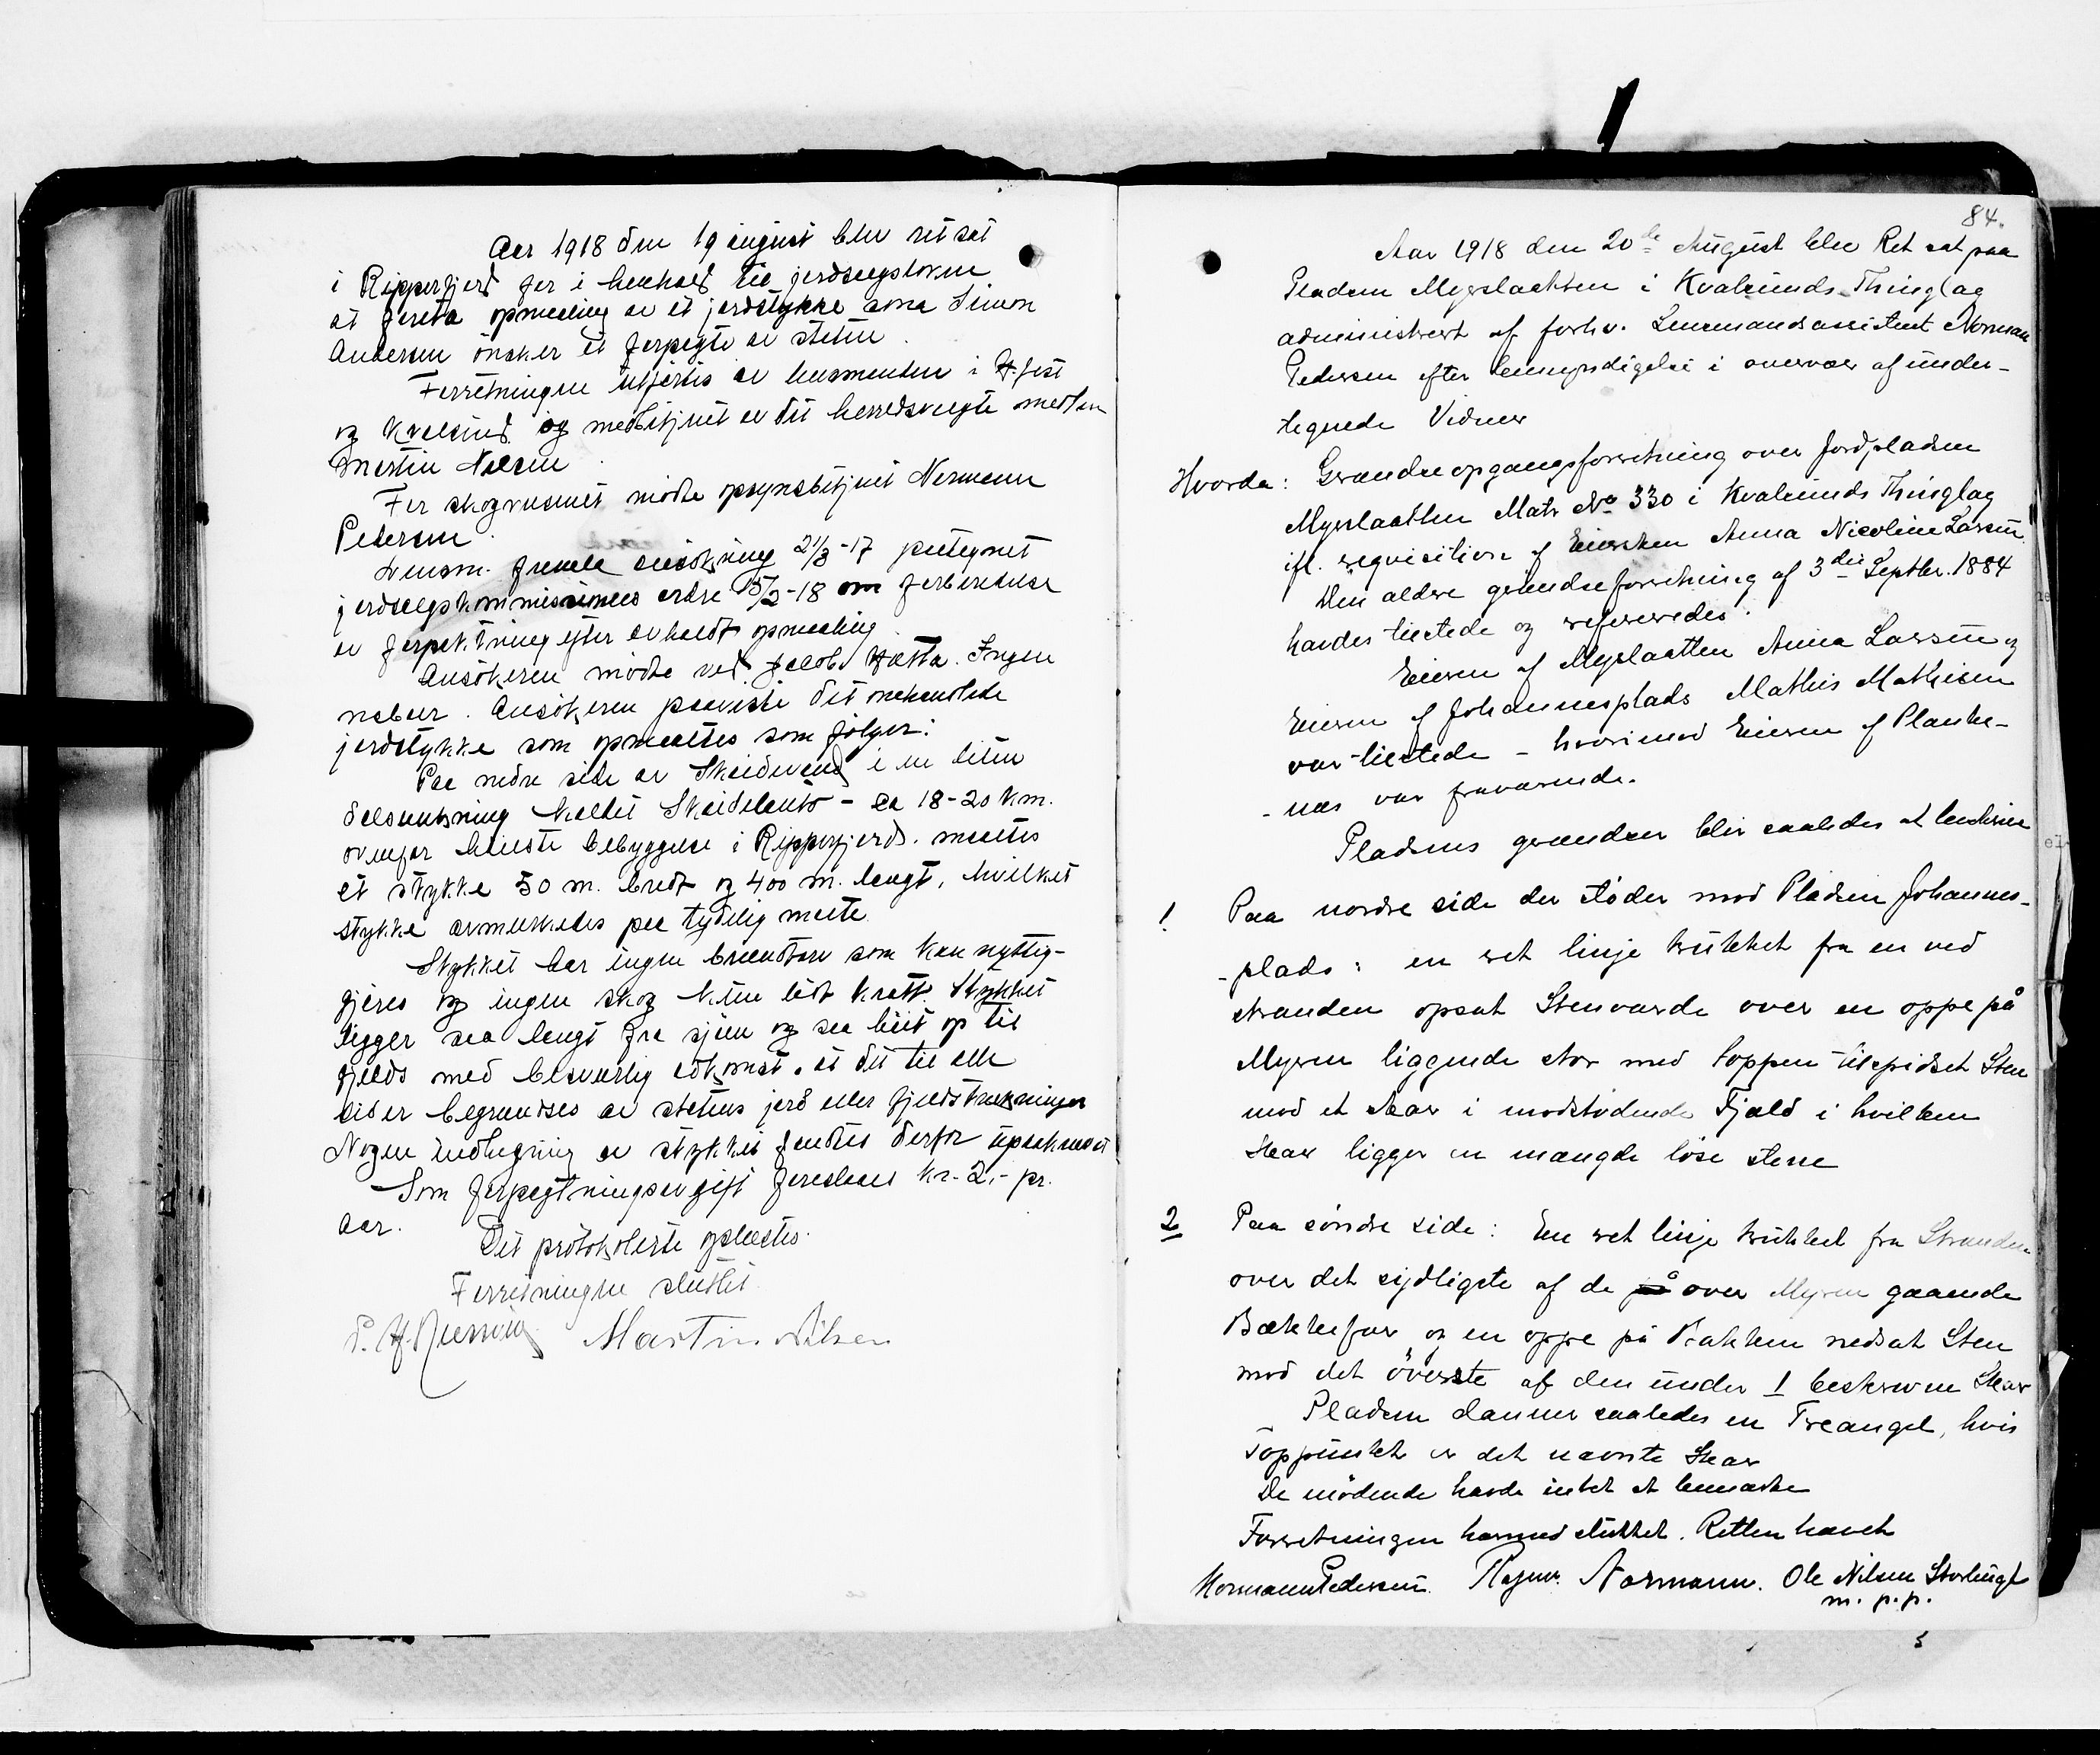 Aar 1918 den 19 august blev ret sat
i Repparfjord for i henhold til jordsalgsloven
at foreta opmaaling av et jordstykke som Simon
Andersen ønsker at forpagte av staten.
Forretningen utførtes av lensmanden i H.fest
og Kvalsund og medbetjent av det herredsvalgte medlem
Martin Nilsen.
For skogvæsenet mødte opsynsbetjent Normann
Pedersen.
Lensm. fremla ansøkning 21/3-17 paategnet
jordsalgskommissionens ordre 15/2-18 om forberedelse
av forpaktning efter avholdt opmaaling.
Ansøkeren mødte ved Jacob Hætta. Ingen
naboer. Ansøkeren paaviste det omhandlede
jordstykke som opmaaltes som følger:
Paa nedre side av Skaidivand i en liten
dalsænkning kaldet Skaidelauts - ca 18-20 km.
ovenfor øverste bebyggelse i Repparfjord. maaltes
et stykke 50 m. bredt og 400 m. langt, hvilket
stykke avmerkedes paa tydelig maate.
Stykket har ingen brændtorv som kan nyttig-
gjøres og ingen skog kun lidt kratt. Stykket
ligger saa langt fra sjøen og saa høit op til
fjelds med besværlig adkomst. at det til alle
sider begrændses av statens jord eller fjeldstrækninger
Nogen indhegning av stykket fandtes derfor upaakrævet
Som forpagtningsavgift foreslaaes kr. 2,- pr.
aar.
Det protokolerte oplæstes.
Forretningen sluttet.
Martin Nilsen
84.
Aar 1918 den 20de August blev Ret sat paa
Pladsen Myrslaatten i Kvalsunds Thinglag
administrert af forhv. Lensmandsassistent Norman
Pedersen efter bemyndigelse i overvær af under-
tegnede Vidner
Hvorda: Grændseopgangsforretning over Jordpladsen
Myrslaatten Matr No 330 i Kvalsunds Thinglag
ifl. requisition af Eiersken Anna Nicoline Larsen.
Den ældre grændseforretning af 3die Septbr. 1884
havdes tilstede og refereredes.
Eieren af Myrslaatten Anna Larsen og
Eieren af Johannesplads Mathis Mathisen
var tilstede - hvorimod Eieren af Planke-
-næs var fraværende.
Pladsens grændser blir saaledes at beskrive
1 Paa nordre side der støder mod Pladsen Johannes-
-plads: en ret linje trukket fra en ved
stranden opsat Stenvarde over en oppe på
Myren liggende stor med toppen tilspidset Sten
mod et skar i modstødende Fjæld i hvilken
skar ligger en mængde løse stene
2 Paa søndre side: En ret linje trukket fra Stranden
over det sydligste af de på over Myren gaaende
Bækkefar og en oppe på Bakken nedsat Sten
mod det øverste af den under 1 beskrevne Skar
Pladsen danner saaledes en Treangel, hvis
Toppunkt er det nævnte Skar
De mødende havde intet at bemærke
Forretningen hermed sluttet. Retten hævet
Normann Pedersen. Ragnv. Normann. Ole Nilsen Storlingt
m. p. p.